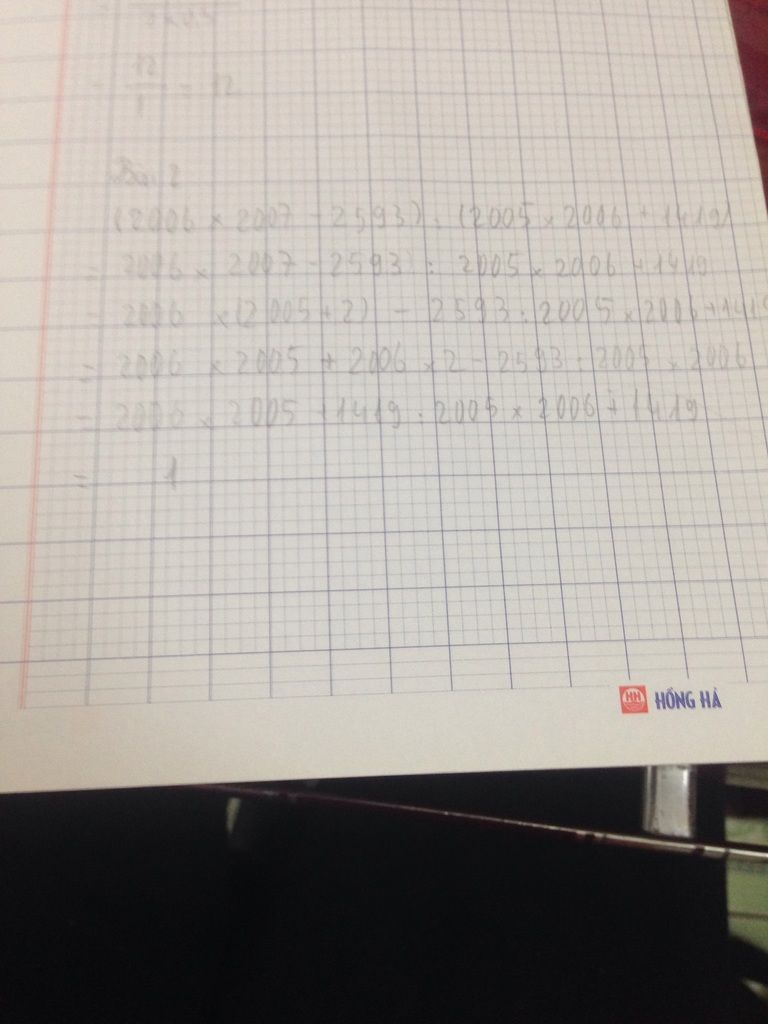 12
= — = 12
1
Bài 2
(2006 × 2007 - 2593) : (2005 × 2006 + 1419)
= 2006 × 2007 - 2593 : 2005 × 2006 + 1419
= 2006 × (2005 + 2) - 2593 : 2005 × 2006 + 1419
= 2006 × 2005 + 2006 × 2 - 2593 : 2005 × 2006
= 2006 × 2005 + 1419 : 2005 × 2006 + 1419
= 1
HH HỒNG HÀ